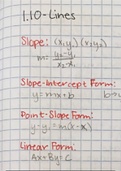 1.10-Lines
Slope: (x₁,y₁) (x₂,y₂)
m= y₂-y₁
x₂-x₁
Slope-Intercept Form:
y=mx+b
Point-Slope Form:
y-y₁=m(x-x₁)
Linear Form:
Ax+By=C